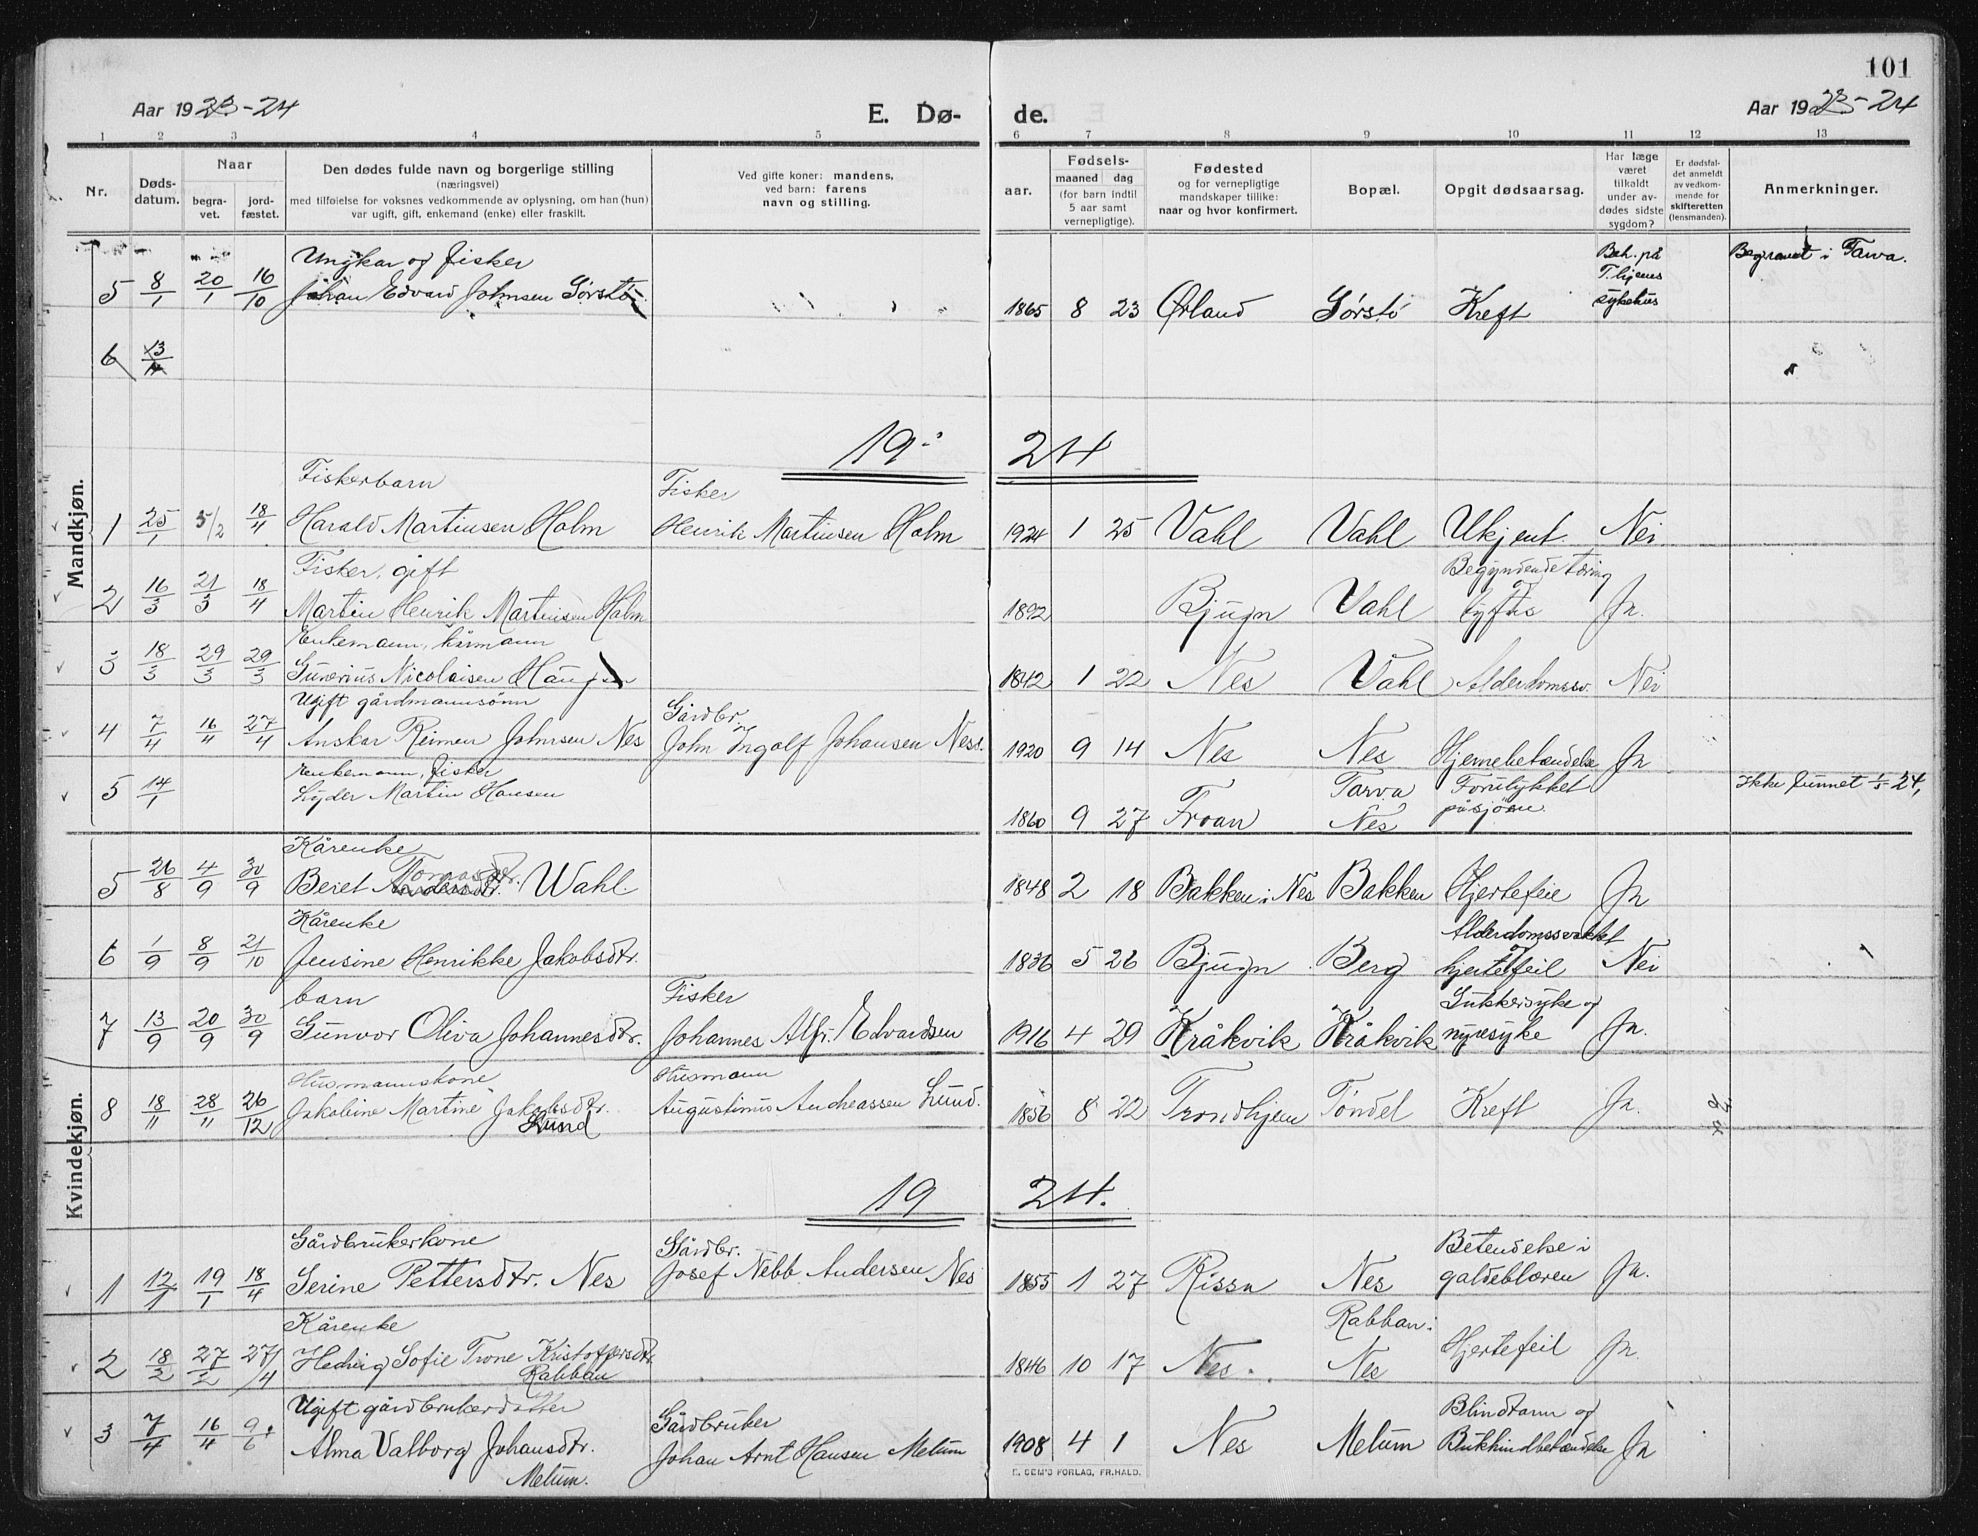 101
Aar 1923-24
E. Dø-
de.
Aar 1923-24
1 2 3 4 5 6 7 8 9 10 11 12 13
Nr.
Døds-
datum.
Naar
begra-
vet.
jord-
fæstet.
Den dødes fulde navn og borgerlige stilling
(næringsvei)
med tilføielse for voksnes vedkommende av oplysning, om han (hun)
var ugift, gift, enkemand (enke) eller fraskilt.
Ved gifte koner: mandens,
ved barn: farens
navn og stilling.
Fødsels-
aar.
maaned dag
(for barn indtil
5 aar samt
vernepligtige).
Fødested
og for vernepligtige
mandskaper tillike:
naar og hvor konfirmert.
Bopæl.
Opgit dødsaarsag.
Har læge
været
tilkaldt
under av-
dødes sidste
sygdom?
Er dødsfal-
det anmeldt
av vedkom-
mende for
skifteretten
(lensmanden).
Anmerkninger.
Mandkjøn.
Ungkar og fisker
5 8/1 20/1 16/10 Johan Edvard Johnsen Sørstø 1865 8 23 Ørland Sørstø Kreft
Beh. på
T.hjems
sykehus
Begravet i Tarva.
6 13/4
19 24
Fiskerbarn Fisker
1 25/1 5/2 18/4 Harald Martinsen Holm Henrik Martinsen Holm 1924 1 25 Vahl Vahl Ukjent. Nei
Fisker, gift Begyndende tæring
2 16/3 21/3 18/4 Martin Henrik Martinsen Holm 1892 Bjugn Vahl tyfus Ja.
Enkemann, kårmann
3 18/3 29/3 29/3 Gunerius Nicolaisen Haugen 1842 1 22 Nes Vahl Alderdomssv. Nei
Ugift gårdmannssønn Gårdbr.
4 7/4 16/4 27/4 Anskar Reimer Johnsen Nes John Ingolf Johansen Ness. 1920 9 14 Nes Nes Hjernebetændelse Ja
Enkemann, fisker Tarva Forulykket Ikke funnet 1/5 24,
5 14/1 Lyder Martin Hansen 1860 9 27 Froan Nes på sjøen
Kvindekjøn.
Kårenke
Tomasdtr.
5 26/8 4/9 30/9 Beret Andersdtr. Wahl. 1848 2 18 Bakken i Nes Bakken Hjertefeie Ja
Kårenke Alderdomssvakhet
6 1/9 8/9 21/10 Jensine Henrikke Jakobsdtr. 1836 5 26 Bjugn Berg hjertefeil Nei
barn Fisker Sukkersyke og
7 13/9 20/9 30/9 Gunvor Oliva Johannesdtr. Johannes Alfr. Edvardsen 1916 4 29 Kråkvik Kråkvik nyresyke Ja.
Husmannskone Husmann
8 18/11 28/11 26/12 Jakobine Martine Jakobsdtr. Augustinus Andreassen Lund. 1856 8 22 Trondhjem Tøndel Kreft Ja.
Lund
19 24.
Gårdbrukerkone Gårdbr. Betendelse i
1 12/1 19/1 18/4 Serine Pettersdtr. Nes Josef Nebb Andersen Nes 1855 1 27 Rissa Nes galdeblæren Ja.
Kårenke Rabban i
2 18/2 27/2 27/4 Hedvig Sofie Trone Kristoffersdtr. 1846 10 17 Nes. Nes Hjertefeil Ja.
Rabban
Ugift gårdbrukerdatter Gårdbruker Blindtarm og
3 7/4 16/4 9/6 Alma Valborg Johansdtr. Johan Arnt Hansen Melum 1908 4 1 Nes Melum Bukhindbetændelse Ja
Melum.
E. SEM'S FORLAG, FR.HALD.